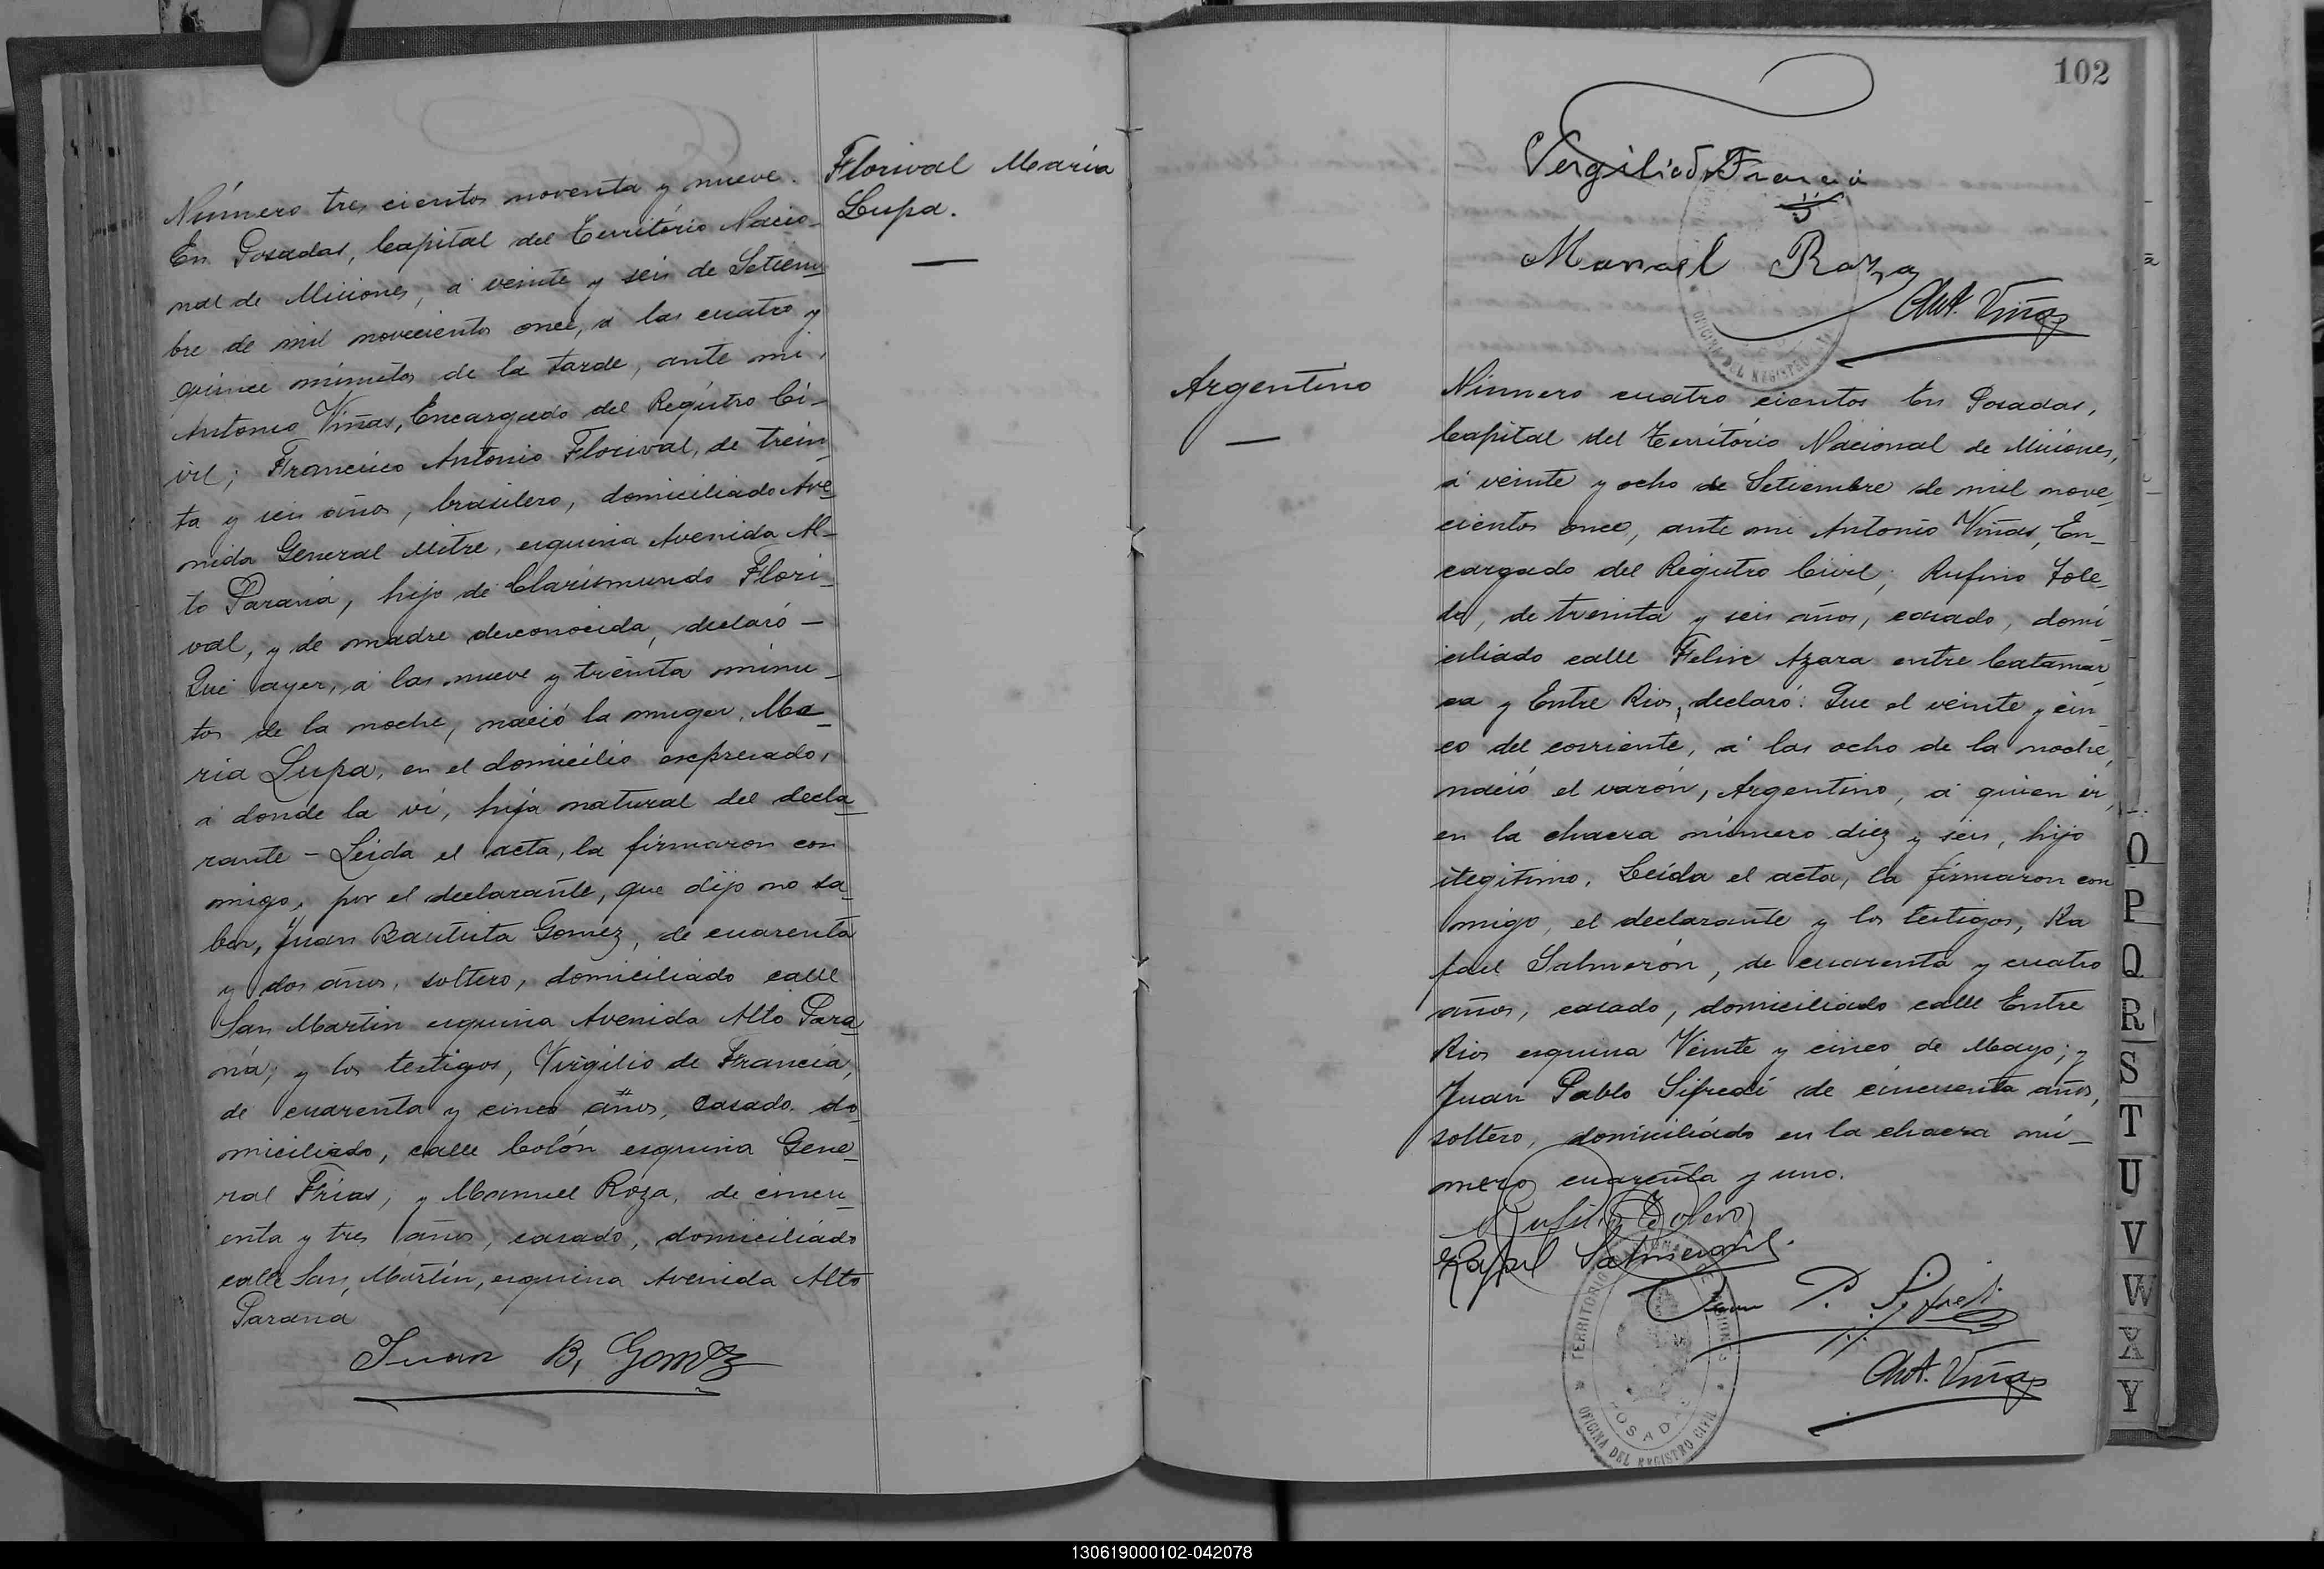 Número tres cientos noventa y nueve.
En Posadas, Capital del Território Nacio-
nal de Misiones, á veinte y seis de Setiem-
bre de mil novecientos once, á las cuatro y
quince minutos de la tarde, ante mi,
Antonio Viñas, Encargado del Registro Ci-
vil; Francisco Antonio Florival, de trein-
ta y seis años, brasilero, domiciliado Ave-
nida General Mitre, esquina Avenida Al-
to Paraná, hijo de Clarismundo Flori-
val, y de madre desconocida, declaró-
Que ayer, á las nueve y treinta minu-
tos de la noche, nació la muger, Ma-
ria Lupa, en el domicilio expresado,
á donde la ví, hija natural del decla-
rante - Leida el acta, la firmaron con
migo, por el declarante, que dijo no sa-
ber, Juan Bautista Gomez, de cuarenta
y dos años, soltero, domiciliado calle
San Martin esquina Avenida Alto Para-
ná; y los testigos, Virgilio de Francia,
de cuarenta y cinco años, casado, do-
miciliado, calle Colón esquina Gene-
ral Frias; y Manuel Roza, de cincu-
enta y tres años, casado, domiciliado
calle San Martin, esquina Avenida Alto
Paraná
Juan B, Gomez
Florival Maria
Lupa.
102
Vergilio d Francia
Manoel Roza
Ant. Viñas
OFICINA DEL REGISTRO CIVIL
Argentino
Número cuatro cientos En Posadas,
Capital del Território Nacional de Misiones,
á veinte y ocho de Setiembre de mil nove-
cientos once, ante mi Antonio Viñas, En-
cargado del Registro Civil; Rufino Tole-
do, de treinta y seis años, casado, domi-
ciliado calle Felix Azara entre Catamar-
ca y Entre Rios, declaró: Que el veinte y cin-
co del corriente, á las ocho de la noche,
nació el varón, Argentino, á quien ví,
en la chacra número diez y seis, hijo
ilegitimo. Leida el acta, la firmaron con
migo, el declarante y los testigos, Ra
fael Salmerón, de cuarenta y cuatro
años, casado, domiciliado calle Entre
Rios esquina Veinte y cinco de Mayo; y
Juan Pablo Sifredi de cincuenta años,
soltero, domiciliado en la chacra nú-
mero cuarenta y uno.
Rufino Toledo
Rafael Salmerón
Juan P. Sifredi
Ant. Viñas
TERRITORIO NACIONAL DE MISIONES
POSADAS
OFICINA DEL REGISTRO CIVIL
O
P
Q
R
S
T
U
V
W
X
Y
130619000102-042078